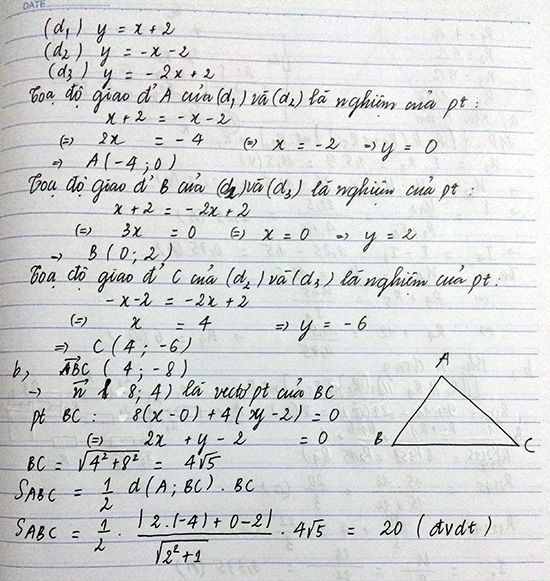 DATE
(d₁) y = x + 2
(d₂) y = -x - 2
(d₃) y = - 2x + 2
Toạ độ giao đ' A của (d₁) và (d₂) là nghiệm của pt :
x + 2 = -x - 2
(=) 2x = - 4 (=) x = -2 => y = 0
=> A (-4 ; 0)
Toạ độ giao đ' B của (d₁) và (d₃) là nghiệm của pt :
x + 2 = - 2x + 2
(=) 3x = 0 (=) x = 0 => y = 2
=> B ( 0 ; 2 )
Toạ độ giao đ' C của (d₂) và (d₃) là nghiệm của pt :
-x - 2 = -2x + 2
(=) x = 4 => y = -6
=> C ( 4 ; -6)
b, BC ( 4 ; -8)
A
-> n ( 8 ; 4) là vectơ pt của BC
pt BC : 8(x - 0) + 4 (y - 2) = 0
(=) 2x + y - 2 = 0
B C
BC = √4² + 8² = 4√5
S_ABC = 1/2 d (A ; BC) . BC
S_ABC = 1/2 . |2.(-4) + 0 - 2| / √2² + 1 . 4√5 = 20 (đvdt)